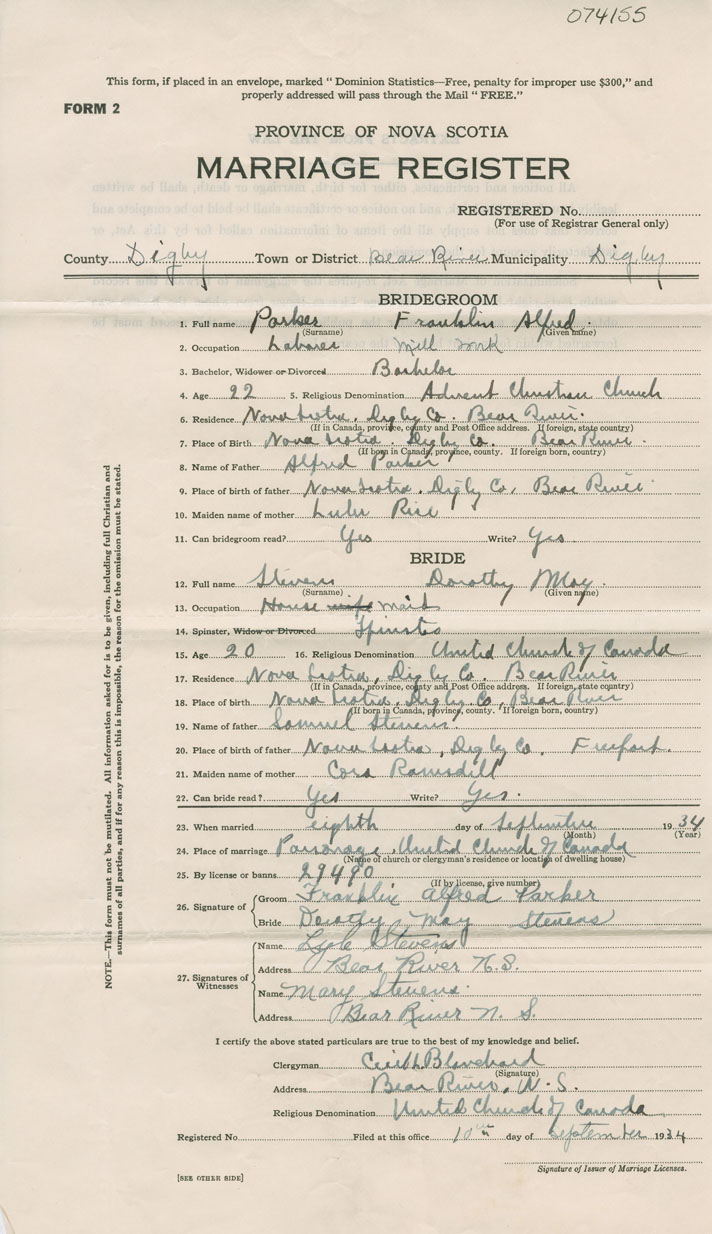 074155
This form, if placed in an envelope, marked " Dominion Statistics—Free, penalty for improper use $300," and
properly addressed will pass through the Mail " FREE."
FORM 2
PROVINCE OF NOVA SCOTIA
MARRIAGE REGISTER
REGISTERED No.
(For use of Registrar General only)
County Digby Town or District Bear River Municipality Digby
BRIDEGROOM
1. Full name Parker Franklin Alfred.
(Surname) (Given name)
2. Occupation Laborer Mill work
3. Bachelor, Widower or Divorced Bachelor
4. Age 22 5. Religious Denomination Advent Christian Church
6. Residence Nova Scotia. Digby Co. Bear River.
(If in Canada, province, county and Post Office address. If foreign, state country)
7. Place of Birth Nova Scotia. Digby Co. Bear River.
(If born in Canada, province, county. If foreign born, country)
8. Name of Father Alfred Parker
9. Place of birth of father Nova Scotia. Digby Co, Bear River
10. Maiden name of mother Rice
11. Can bridegroom read? Yes Write? Yes
BRIDE
12. Full name Stevens Dorothy May.
(Surname) (Given name)
13. Occupation House wife maid
14. Spinster, Widow or Divorced Spinster
15. Age 20 16. Religious Denomination United Church of Canada
17. Residence Nova Scotia, Digby Co. Bear River
(If in Canada, province, county and Post Office address. If foreign, state country)
18. Place of birth Nova Scotia. Digby Co, Bear River
(If born in Canada, province, county. If foreign born, country)
19. Name of father Samuel Stevens.
20. Place of birth of father Nova Scotia, Digby Co. Freeport.
21. Maiden name of mother Cora Ramsdill
22. Can bride read? Yes Write? Yes.
23. When married eighth day of September 1934
(Month) (Year)
24. Place of marriage Parsonage, United Church of Canada
(Name of church or clergyman's residence or location of dwelling house)
25. By license or banns 29490
(If by license, give number)
26. Signature of Groom Franklin Alfred Parker
Bride Dorothy May Stevens
27. Signatures of Witnesses
Name Lyle Stevens
Address Bear River N.S.
Name Mary Stevens.
Address Bear River N. S.
I certify the above stated particulars are true to the best of my knowledge and belief.
Clergyman Blanchard
(Signature)
Address Bear River, N.S.
Religious Denomination United Church of Canada
Registered No. Filed at this office 10th day of September 1934
Signature of Issuer of Marriage Licenses.
[SEE OTHER SIDE]
NOTE.—This form must not be mutilated. All information asked for is to be given, including full Christian and
surnames of all parties, and if for any reason this is impossible, the reason for the omission must be stated.